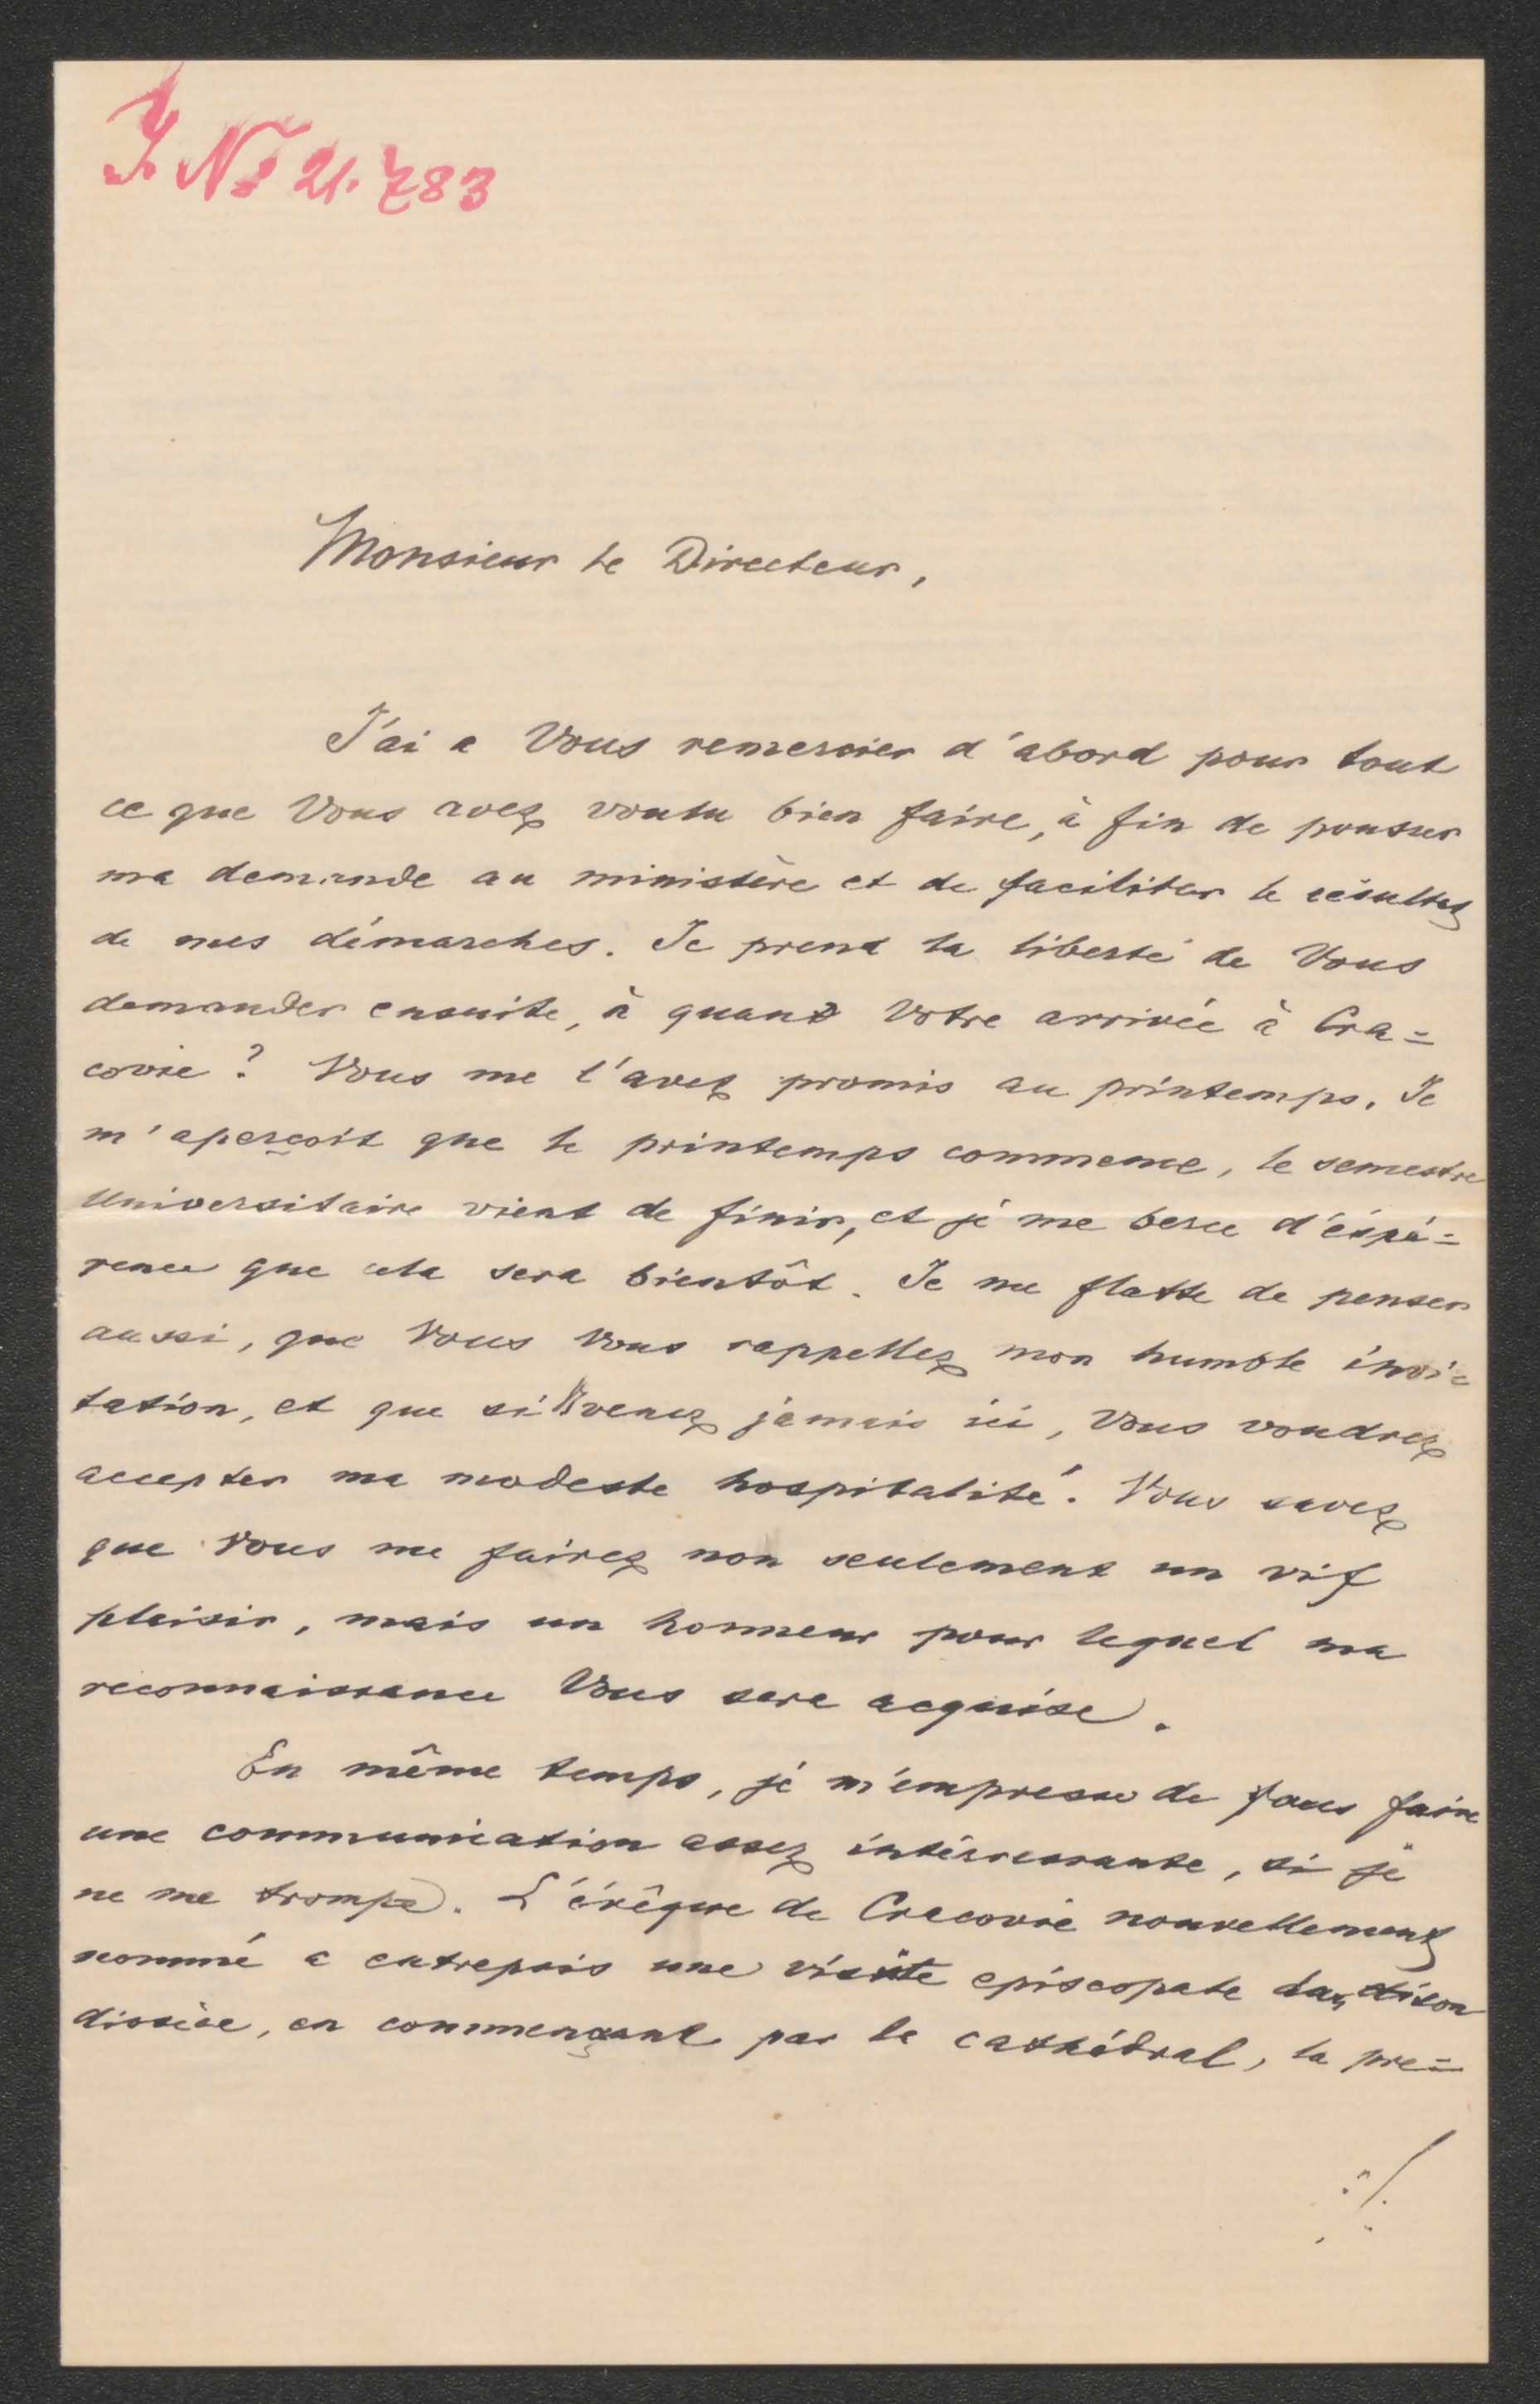 J. No 21.783
Monsieur le Directeur,
J'ai a Vous remercier d'abord pour tout
ce que Vous avez voulu bien faire, à fin de pousser
ma demande au ministère et de faciliter le résultat
de mes démarches. Je prend la liberté de Vous
demander ensuite, à quand Votre arrivée à Cra=
covie? Vous me l'avez promis au printemps. Je
m'aperçoit que le printemps commence, le semestre
universitaire vient de finir, et je me berce d'éspé=
rence que cela sera bientôt. Je me flatte de penser
aussi, que Vous Vous rappellez mon humble invi=
tation, et que si V venez jamais ici, Vous voudrez
accepter ma modeste hospitalité. Vous savez
que Vous me fairez non seulement un vif
plaisir, mais un honneur pour lequel ma
reconnaissance Vous sera acquise.
En même temps, je m'empresse de Vous faire
une communication assez intérressante, si je
ne me trompe. L'évêque de Cracovie nouvellement
nommé a entrepris une visite episcopale dans son
diocèse, en commençant par le cathédral, la pre=
./.